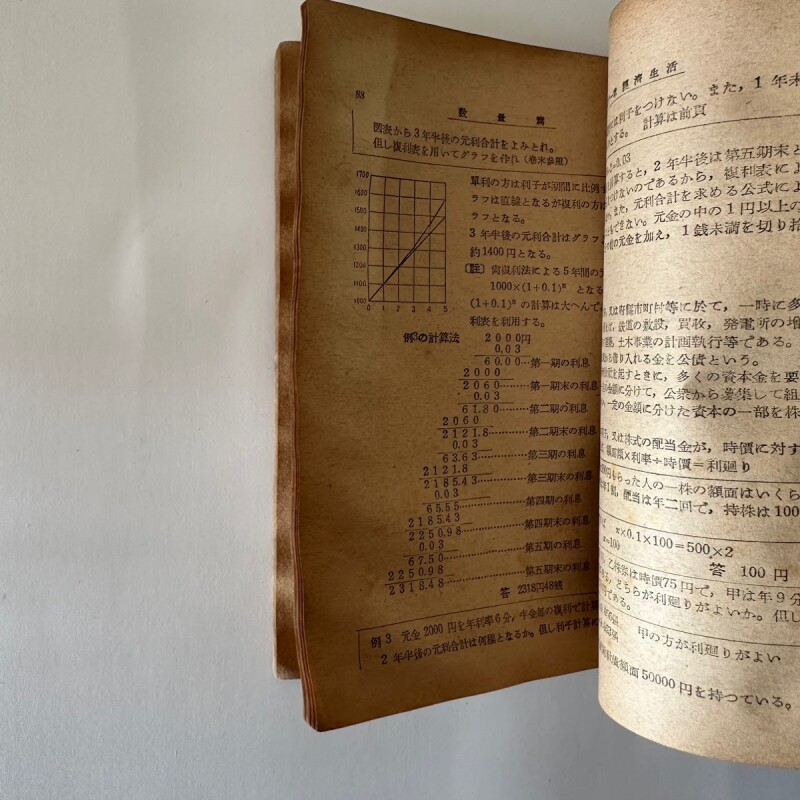 88
数量篇
図表から3年半後の元利合計をよみとれ。
但し複利表を用いてグラフを作れ（巻末参照）
1700
1600
1500
1400
1300
1200
1100
1000
0 1 2 3 4 5
単利の方は利子が期間に比例
ラフは直線となるが複利の方は
ラフとなる。
3年半後の元利合計はグラフ
約1400円となる。
〔註〕 複利法による5年間の
1000×(1+0.1)⁵ となる
(1+0.1)⁵ の計算は大へんで
利表を利用する。
例3の計算法 2000円
0.03
60.00……第一期の利息
2000
2060………第一期末の利息
0.03
61.80………第二期の利息
2060
2121.8………第二期末の利息
0.03
63.63………第三期の利息
2121.8
2185.43………第三期末の利息
0.03
65.55………第四期の利息
2185.43
2250.98………第四期末の利息
0.03
67.50………第五期の利息
2250.98
2318.48………第五期末の利息
答 2318円48銭
例3 元金2000円を年利率6分，半金毎の複利で計算
2年半後の元利合計は何程となるか。但し利子計算に
経済生活
は利子をつけない。また，1年未
とする。 計算は前頁
=0.03
算すると，2年半後は第五期末と
つけないのであるから，複利表によ
また，元利合計を求める公式によ
もできない。元金の中の1円以上の
の元金を加え，1銭未満を切り捨
又は府県市町村等に於て，一時に多
鉄道の敷設，買收，発電所の増
土木事業の計画執行等である。
借り入れる金を公債という。
を起すときに，多くの資本金を要
金額に分けて，公衆から募集して組
一定の金額に分けた資本の一部を株
又は株式の配当金が，時價に対す
額面額×利率÷時價＝利廻り
もらった人の一株の額面はいくら
配当は年二回で，持株は100
x×0.1×100=500×2
x=100
答 100円
乙株券は時價75円で，甲は年9分
どちらが利廻りがよいか。但し
である。
甲の方が利廻りがよい
額面50000円を持つている。